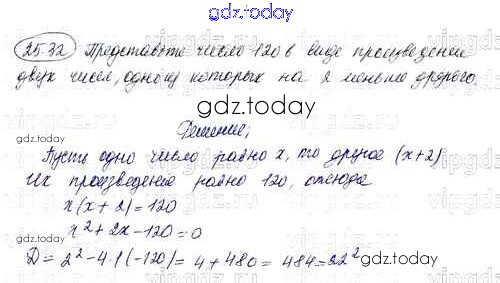 gdz.today
25.32 Представьте число 120 в виде произведения
двух чисел, одно из которых на 2 меньше другого.
gdz.today
Решение;
Пусть одно число равно x, то другое (x+2)
Их произведение равно 120, отсюда
x(x+2)=120
x²+2x-120=0
D=2²-4·1(-120)=4+480=484=22²
gdz.today